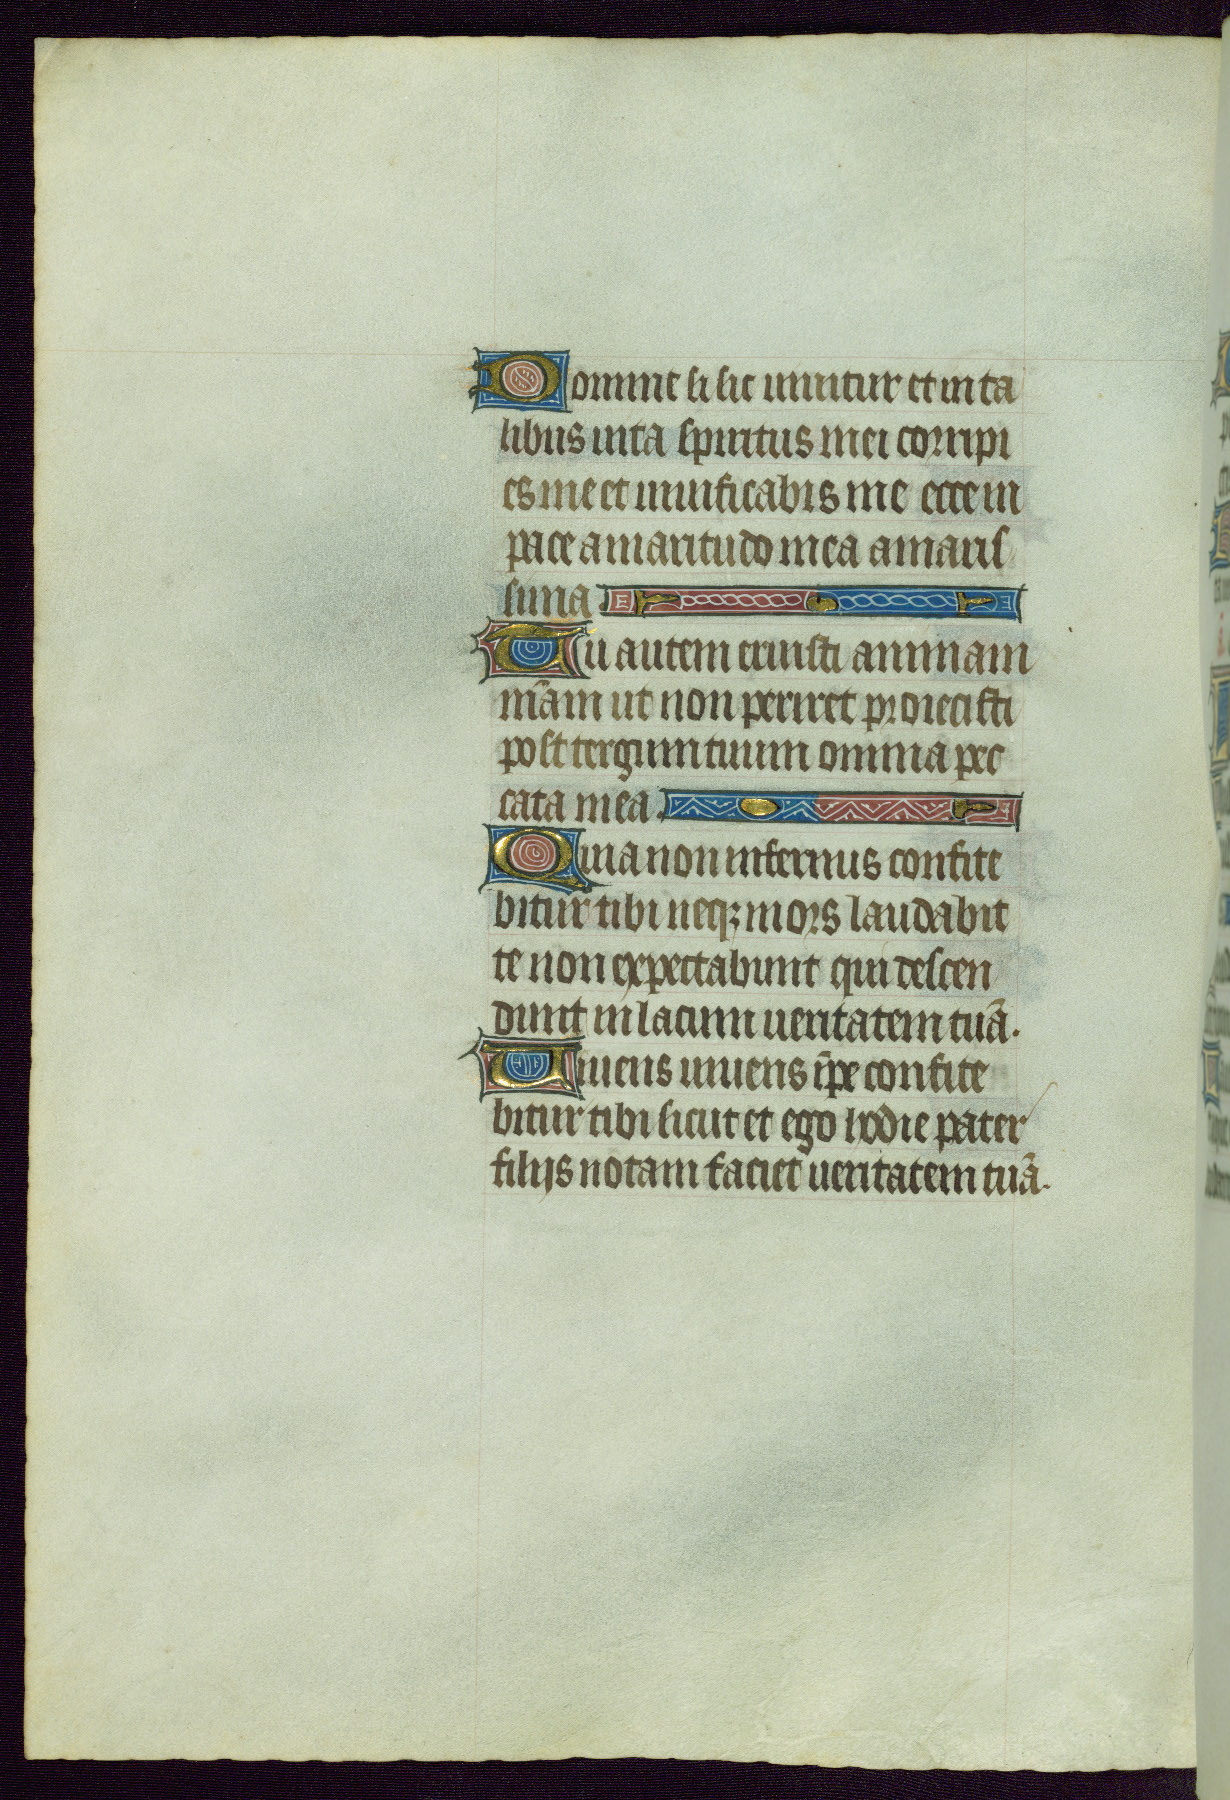 Domine si sic uiuitur et in ta
libus uita spiritus mei corripi
es me et uiuificabis me ecce in
pace amaritudo mea amaris
sima
Tu autem eruisti animam
mēam ut non periret proiecisti
post tergum tuum omnia pec
cata mea.
Quia non infernus confite
bitur tibi neqꝫ mors laudabit
te non expectabunt qui descen
dunt in lacum ueritatem tuā.
Uiuens uiuens ip̄e confite
bitur tibi sicut et ego hodie pater
filijs notam faciet ueritatem tuā.